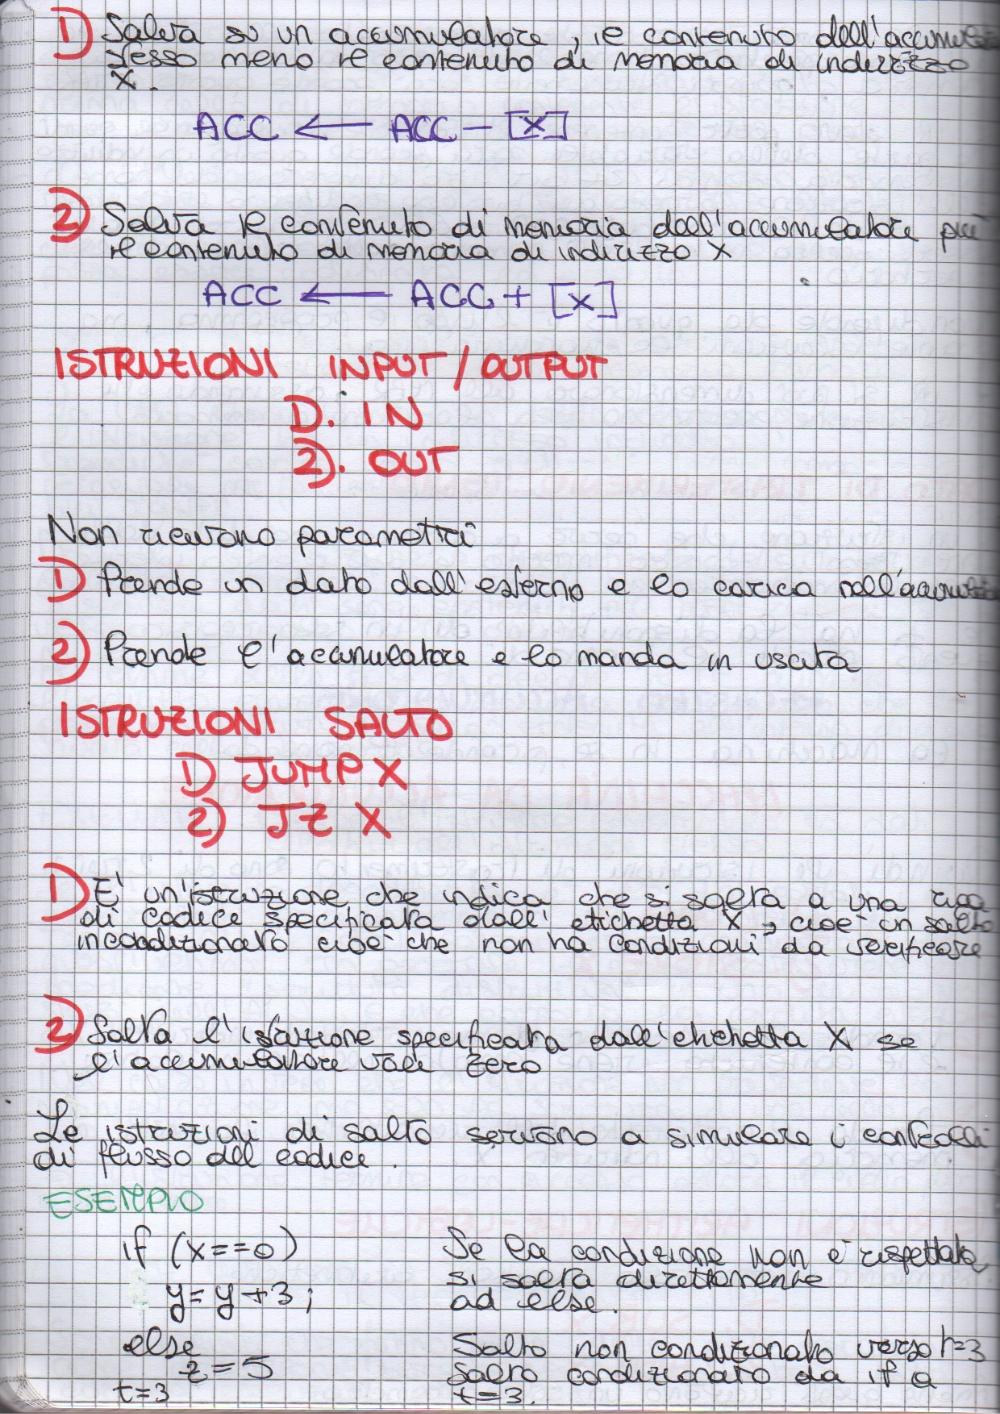 1) Salva su un accumulatore, il contenuto dell'accumul
stesso meno il contenuto di memoria di indirizzo
X.
ACC ← ACC - [X]
2) Salva il contenuto di memoria dell'accumulatore più
il contenuto di memoria di indirizzo X
ACC ← ACC + [X]
ISTRUZIONI INPUT/OUTPUT
1). IN
2). OUT
Non ricevono parametri
1) Prende un dato dall'esterno e lo carica nell'accumul
2) Prende l'accumulatore e lo manda in uscita
ISTRUZIONI SALTO
1) JUMP X
2) JZ X
1) E' un'istruzione che indica che si salta a una riga
di codice specificata dall' etichetta X, cioè un salto
incondizionato cioè che non ha condizioni da verificare
2) Salta l'istruzione specificata dall'etichetta X se
l'accumulatore vale zero
Le istruzioni di salto servono a simulare i controlli
di flusso del codice.
ESEMPIO
if (x==0)
y=y+3;
else
z=5
t=3
Se la condizione non è rispettata
si salta direttamente
ad else.
Salto non condizionato verso t=3
salto condizionato da if a
t=3.